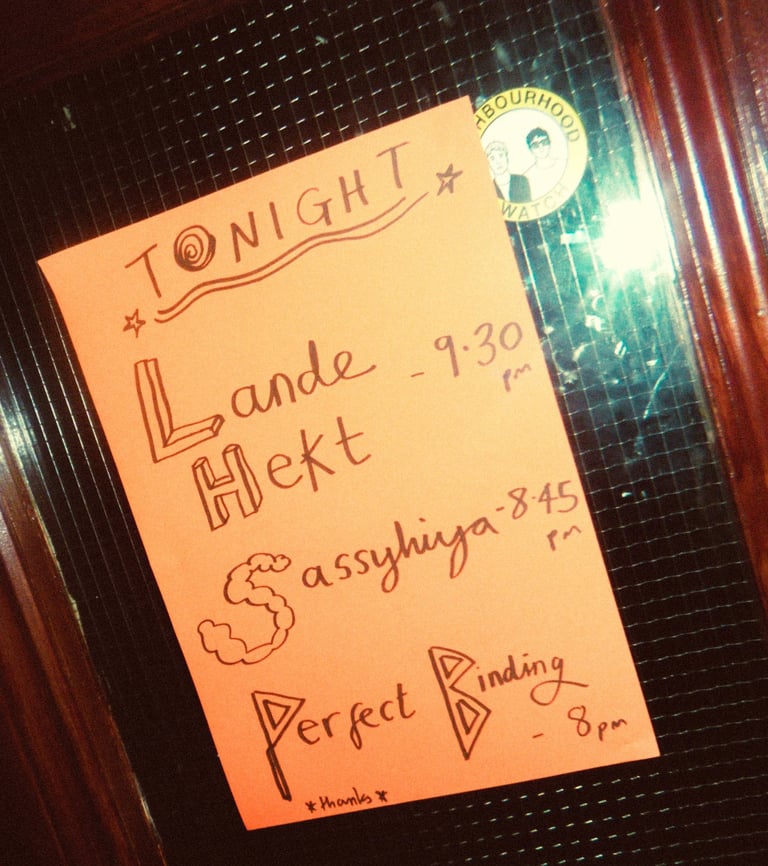 TONIGHT
Lande - 9.30 pm
Hekt
Sassyhiya - 8.45 pm
Perfect Binding - 8pm
*thanks*
HBOURHOOD
WATCH